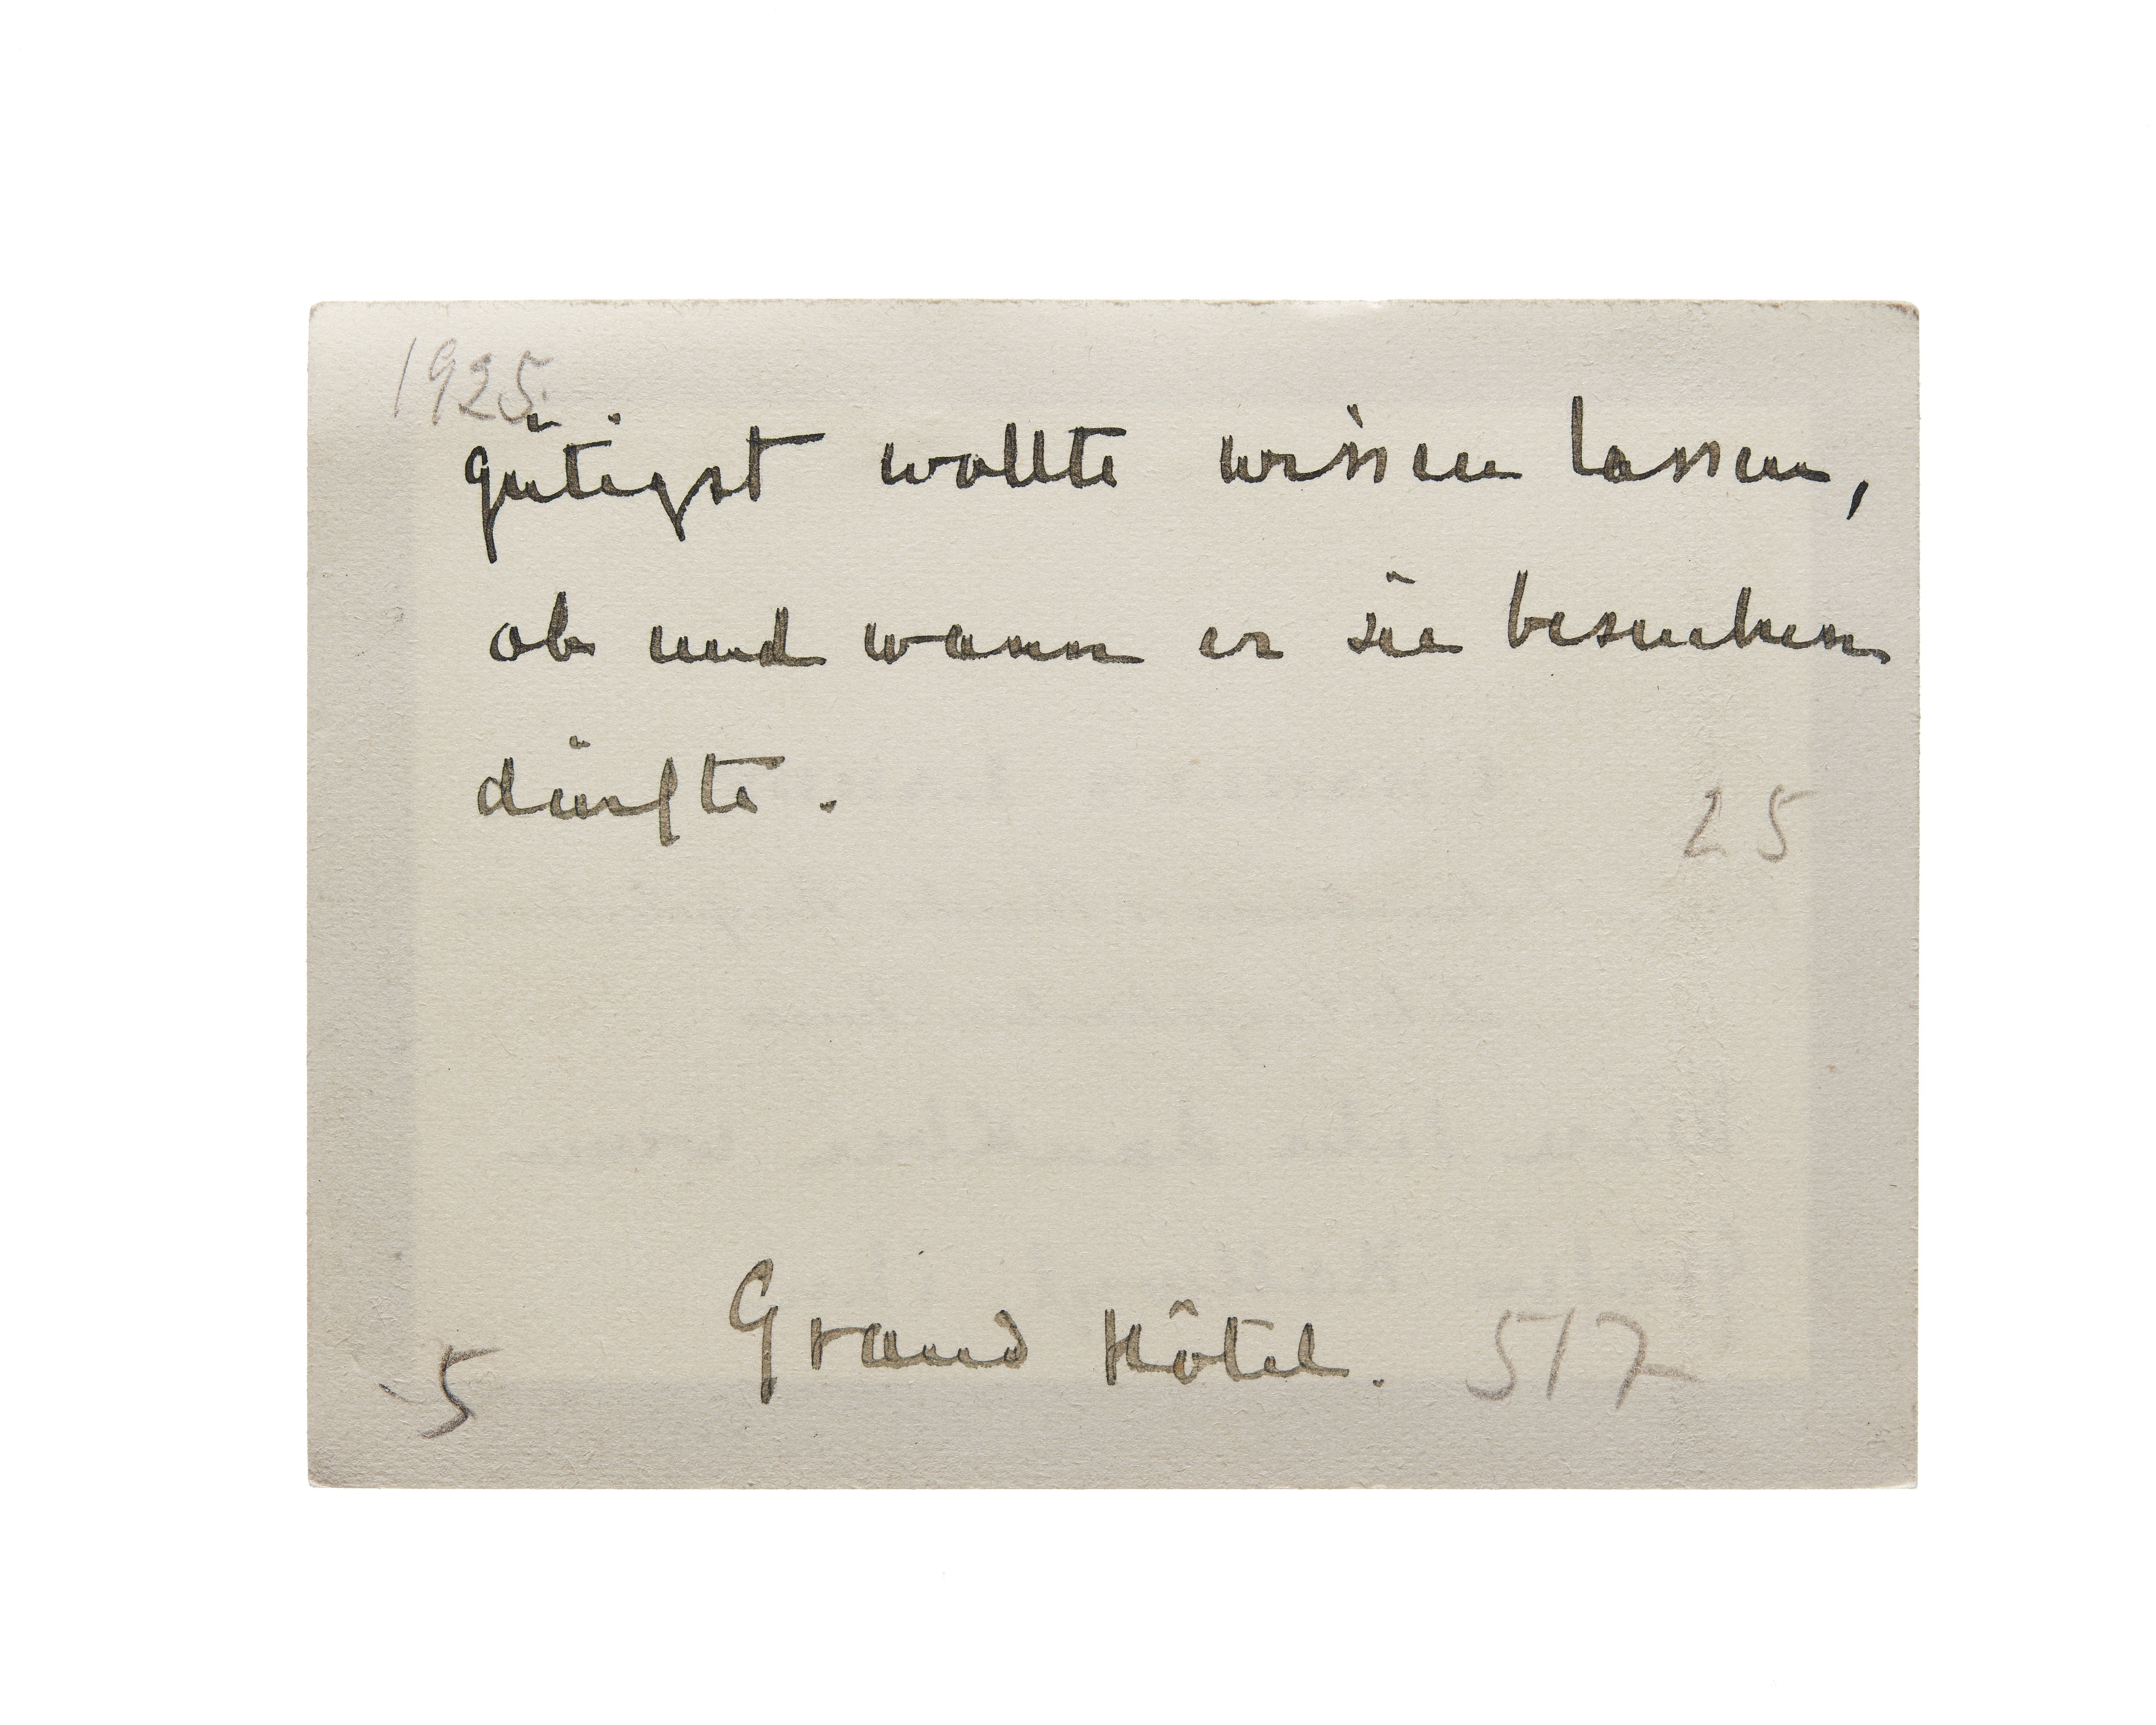 1925.
gütigst wollte wissen lassen,
ob und wann er sie besuchen
dürfte.
25
Grand Hôtel. 517
5